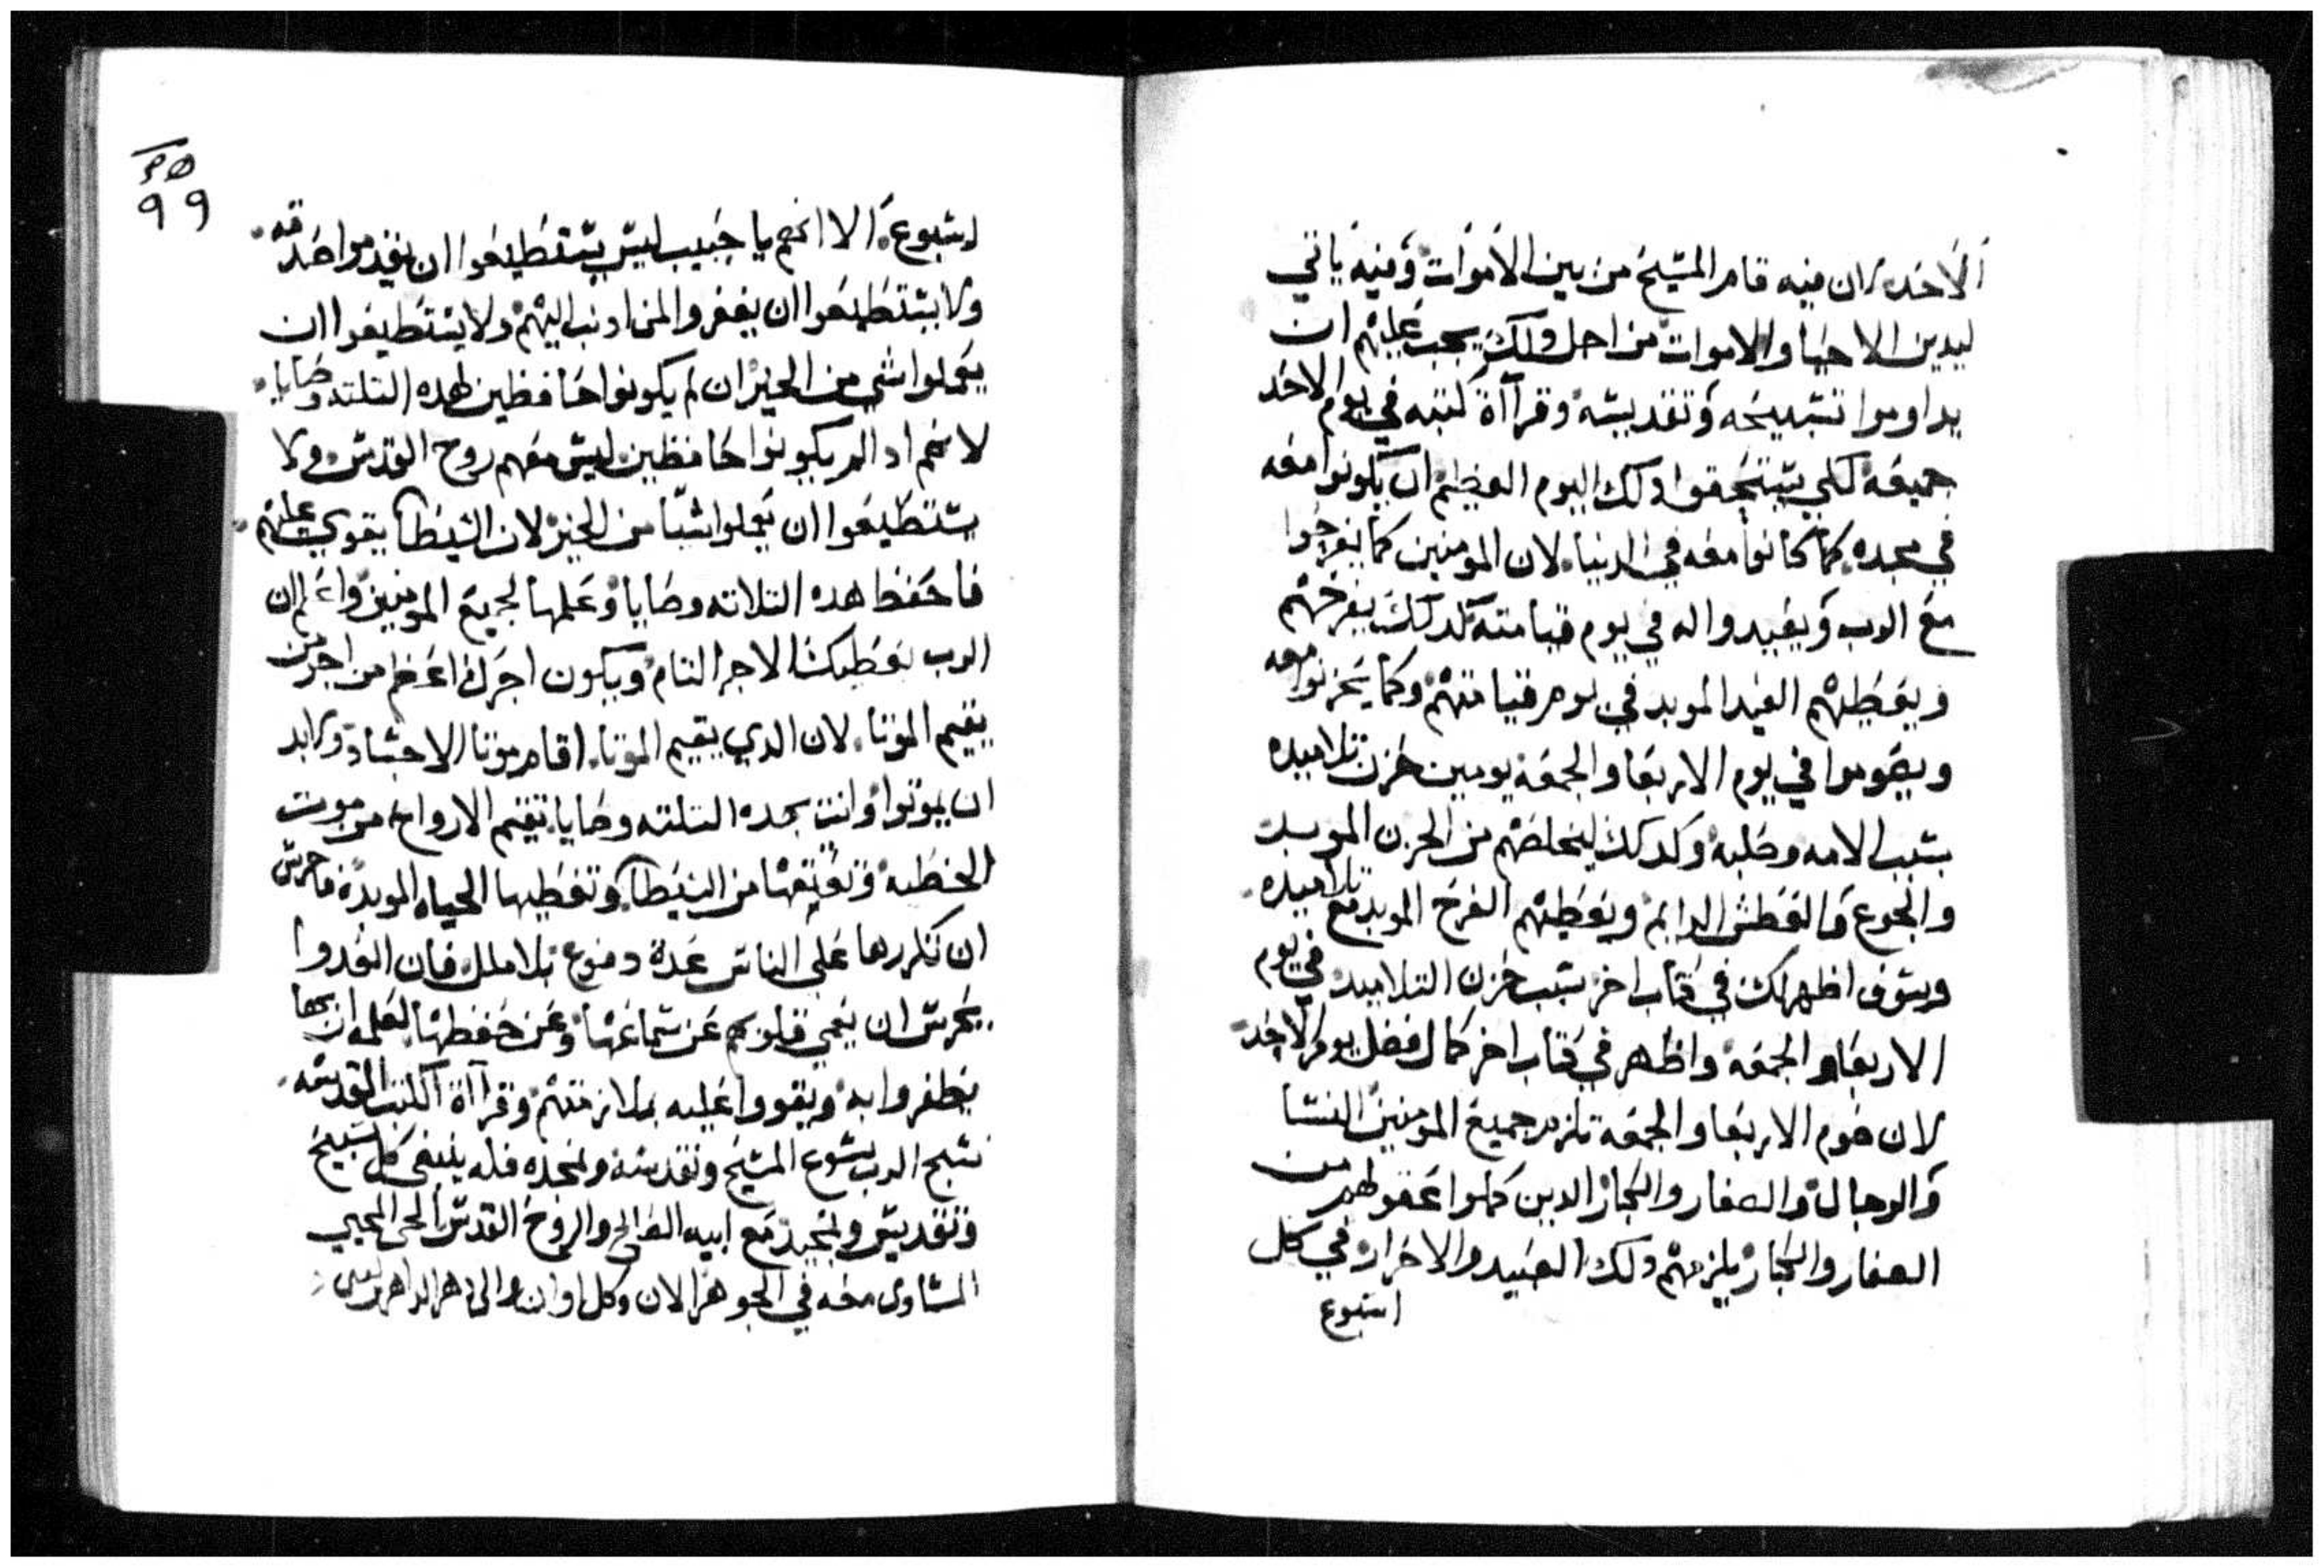 الاحد لان فيه قام المسيح من بين الاموات وفيه ياتي
ليدين الاحيا والاموات من اجل ذلك يجب عليهم ان
يداوموا تسبيحه وتقديسه وقرآاة كتبه في يوم الاحد
جميعه لكي يستحقوا ذلك اليوم العظيم ان يكونوا معه
في مجده كما كانوا معه في الدنيا. لان المومنين كما يفرحوا
مع الرب ويعيدوا له في يوم قيامته كدلك يفرحهم
ويعطيهم العيد الموبد في يوم قيامتهم وكما يحزنوا معه
ويصوموا في يوم الاربعا والجمعه يومين حزن تلاميده
بسبب الامه وصلبه وكدلك ليخلصهم من الحزن الموبد
والجوع والعطش الدايم ويعطيهم الفرح الموبد مع تلاميده.
وسوف اظهر لك في كتاب اخر سبب حزن التلاميد في يوم
الاربعا والجمعه واظهر في كتاب اخر كمال فضل يوم الاحد
لان صوم الاربعا والجمعه تلزم جميع المومنين النسا
والرجال والصغار والكبار الدين كملوا عقولهم من
الصغار والكبار يلزمهم دلك العبيد والاحرار في كل
اسبوع
٩٩
اسبوع. الا انهم يا حبيب ليس يستطيعوا ان يقدموا صدقه.
ولا يستطيعوا ان يغفروا لمن ادنب اليهم ولا يستطيعوا ان
يعملوا شي من الخير ان لم يكونوا حافظين لهده التلته وصايا.
لانهم ادا لم يكونوا حافظين ليس معهم روح القدس ولا
يستطيعوا ان يعملوا شيا من الخير لان الشيطان يقوي عليهم.
فاحفظ هده التلاته وصايا وعلمها لجميع المومنين واعلم ان
الرب يعطيك الاجر التام ويكون اجرك اعظم من اجر من
يقيم الموتا. لان الدي يقيم الموتا. اقام موتا الاجساد ولا بد
ان يموتوا وانت بهده التلته وصايا تقيم الارواح من موت
الخطيه وتعتقها من الشيطان وتعطيها الحياه الموبده فاحرس
ان تكررها على الناس عدة دفوع بلا ملل فان العدوا
يحرس ان يعمي قلوبهم عن سماعها وعن حفظها لعلمه ان بها
يظفروا به ويقووا عليه بملازمتهم وقرآاة الكتب المقدسه.
نسبح الرب يسوع المسيح ونقدسه ونمجده فله ينبغي كل تسبيح
وتقديس وتمجيد مع ابيه الصالح والروح القدس الحي المحيي
المساوي معه في الجوهر الان وكل اوان والى دهر الداهرين